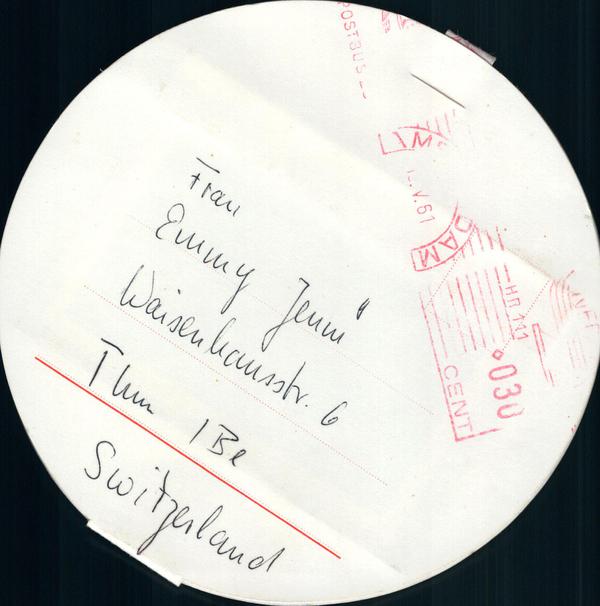 POSTBUS
V.61
DAM
HR 111
030
CENT
Frau
Emmy Jenni
Waisenhausstr. 6
Thun 1Be
Switzerland